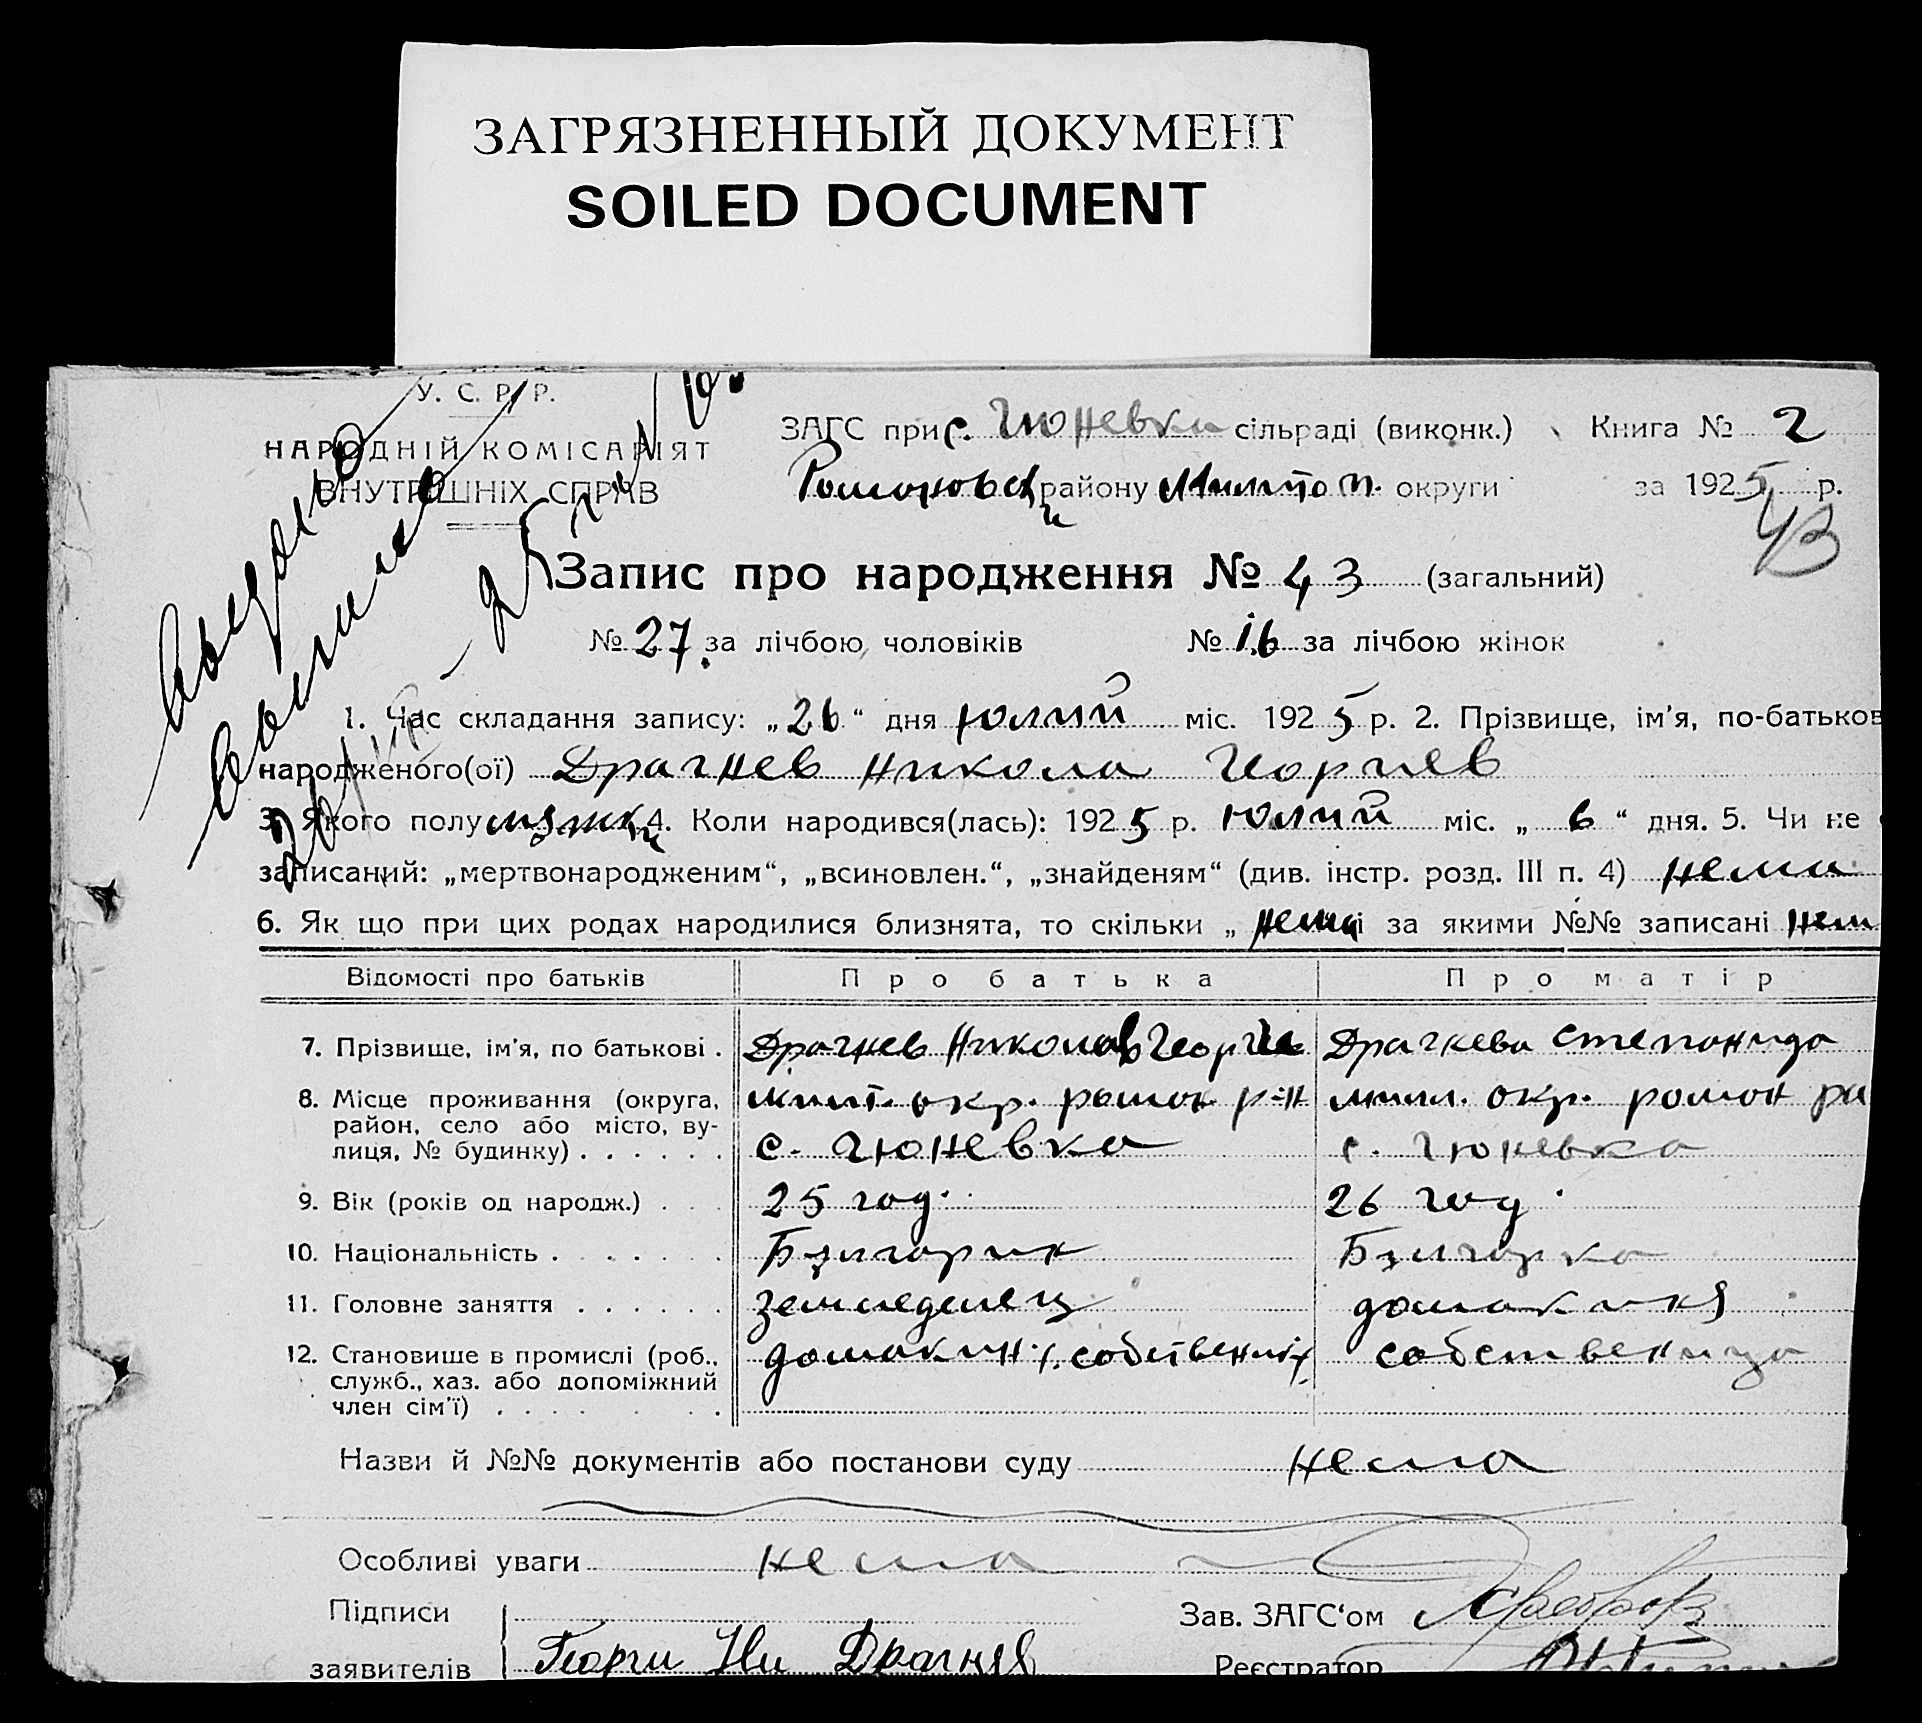 ЗАГРЯЗНЕННЫЙ ДОКУМЕНТ
SOILED DOCUMENT
У. С. Р. Р.
НАРОДНІЙ КОМІСАРІЯТ
ВНУТРІШНІХ СПРАВ
ЗАГС при с. Гюневки сільраді (виконк.) Книга № 2
району округи за 1925 р.
43
Запис про народження № 43 (загальний)
№ 27 за лічбою чоловіків № 16 за лічбою жінок
1. Час складання запису: „26“ дня Юлий міс. 1925 р. 2. Прізвище, ім'я, по-батьков
народженого(ої) Драгнев Никола Георгиев
3. Якого полу 4. Коли народився(лась): 1925 р. Юлий міс. „6“ дня. 5. Чи не
записаний: „мертвонародженим“, „всиновлен.“, „знайденям“ (див. інстр. розд. III п. 4) нема
6. Як що при цих родах народилися близнята, то скільки „нема і за якими №№ записані нем
Відомості про батьків Про батька Про матір
7. Прізвище, ім'я, по батькові . Драгнев Георгие Драгнева Степанида
8. Місце проживання (округа, окр. р-н мил. окр. ромон ра
район, село або місто, ву-
лиця, № будинку) . . . . . . с. Гюневка с. Гюневка
9. Вік (років од народж.) . . . 25 год. 26 год.
10. Національність . . . . . . . Бългорин Бългорка
11. Головне заняття . . . . . . земледелец домакиня
12. Становише в промислі (роб., домакин собственик собственица
служб., хаз. або допоміжний
член сім'ї) . . . . . . .
Назви й №№ документів або постанови суду нема
Особливі уваги нема
Підписи Зав. ЗАГС'ом
заявителів Георги Ив Драгнев Реєстратор